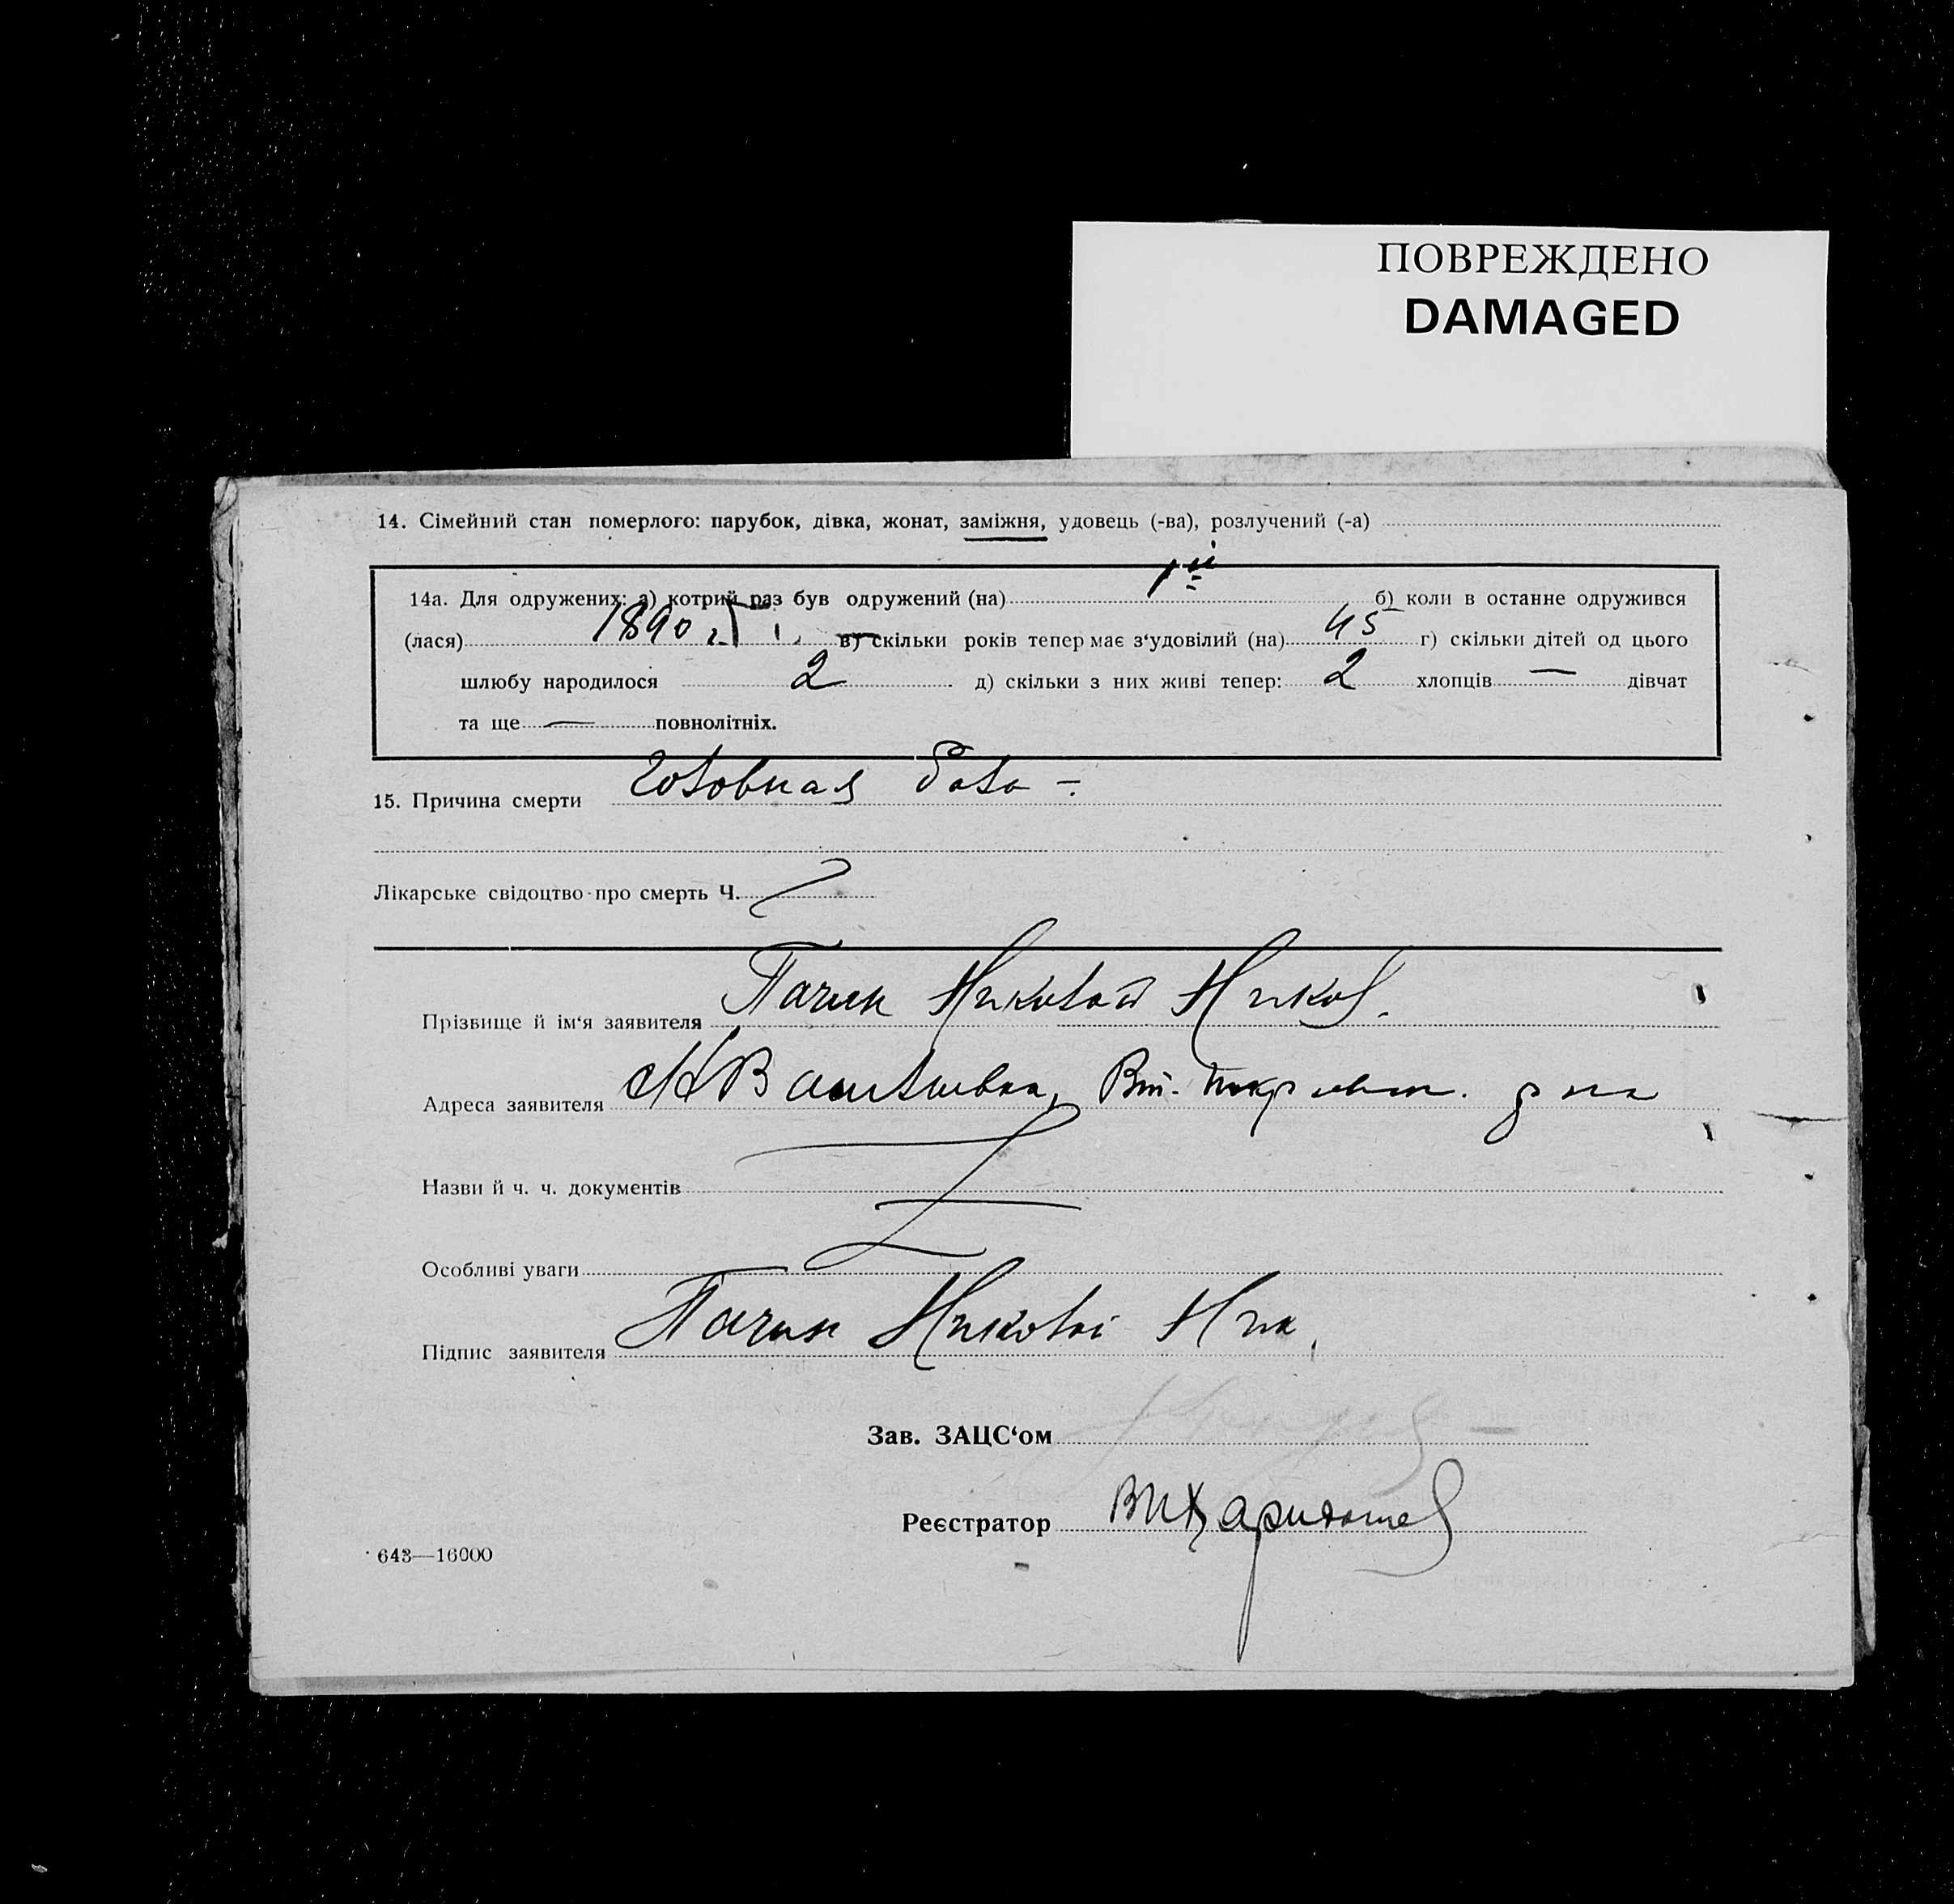 ПОВРЕЖДЕНО
DAMAGED
14. Сімейний стан померлого: парубок, дівка, жонат, заміжня, удовець (-ва), розлучений (-а)
14а. Для одружених: а) котрий раз був одружений (на) 1й б) коли в останне одружився
(лася) 1890 г. в) скільки років тепер має з‘удовілий (на) 45 г) скільки дітей од цього
шлюбу народилося 2 д) скільки з них живі тепер: 2 хлопців — дівчат
та ще — повнолітніх.
15. Причина смерти Головная боль
Лікарське свідоцтво про смерть Ч.
Прізвище й ім‘я заявителя Пачин Николай Никол.
Адреса заявителя
Назви й ч. ч. документів
Особливі уваги
Підпис заявителя Пачин Николай Ник.
Зав. ЗАЦС‘ом
Реєстратор
643—16000